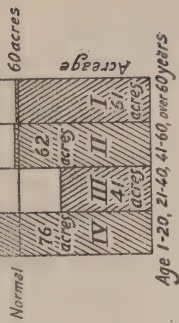 Normal
60 acres
Acreage
IV
76
acres
III
41
acres
II
62
acres
I
61
acres
Age 1-20, 21-40, 41-60, over 60 years